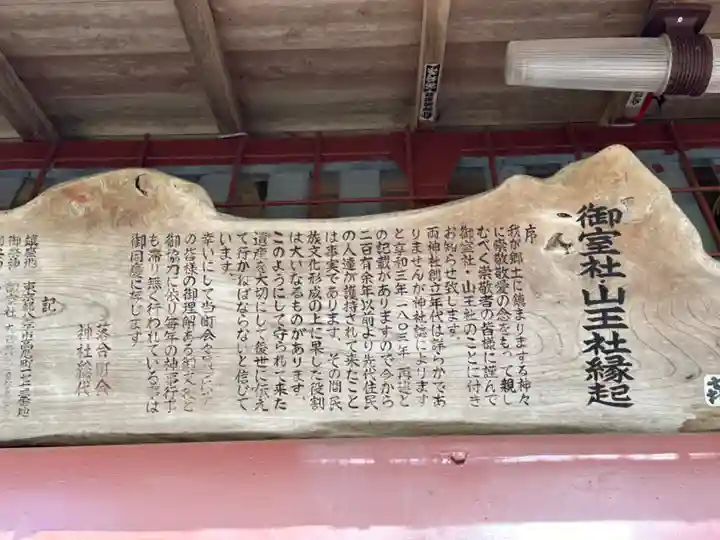 御室社・山王社縁起
序
我が郷土に鎮まります神々
に崇敬敬愛の念をもって親し
むべく崇敬者の皆様に謹んで
御室社・山王社のことに付き
お知らせ致します。
両神社創立年代は詳らかであ
りませんが神社誌によります
と享和三年(一八〇三年)再建と
の記載がありますので今から
二百有余年以前より先代住民
の人達が維持されて来たこと
は事実であります、その間民
族文化形成の上に果した役割
は大いなるものがあります。
このようにして守られて来た
遺産を大切にして後世に伝え
て行かねばならないと信じて
います。
幸いにして当町会
の皆様の御理解ある
御協力に依り毎年の神事行事
も滞り無く行われている事は
御同慶に存します
落合町会
神社総代
記
鎮座地
御祭神